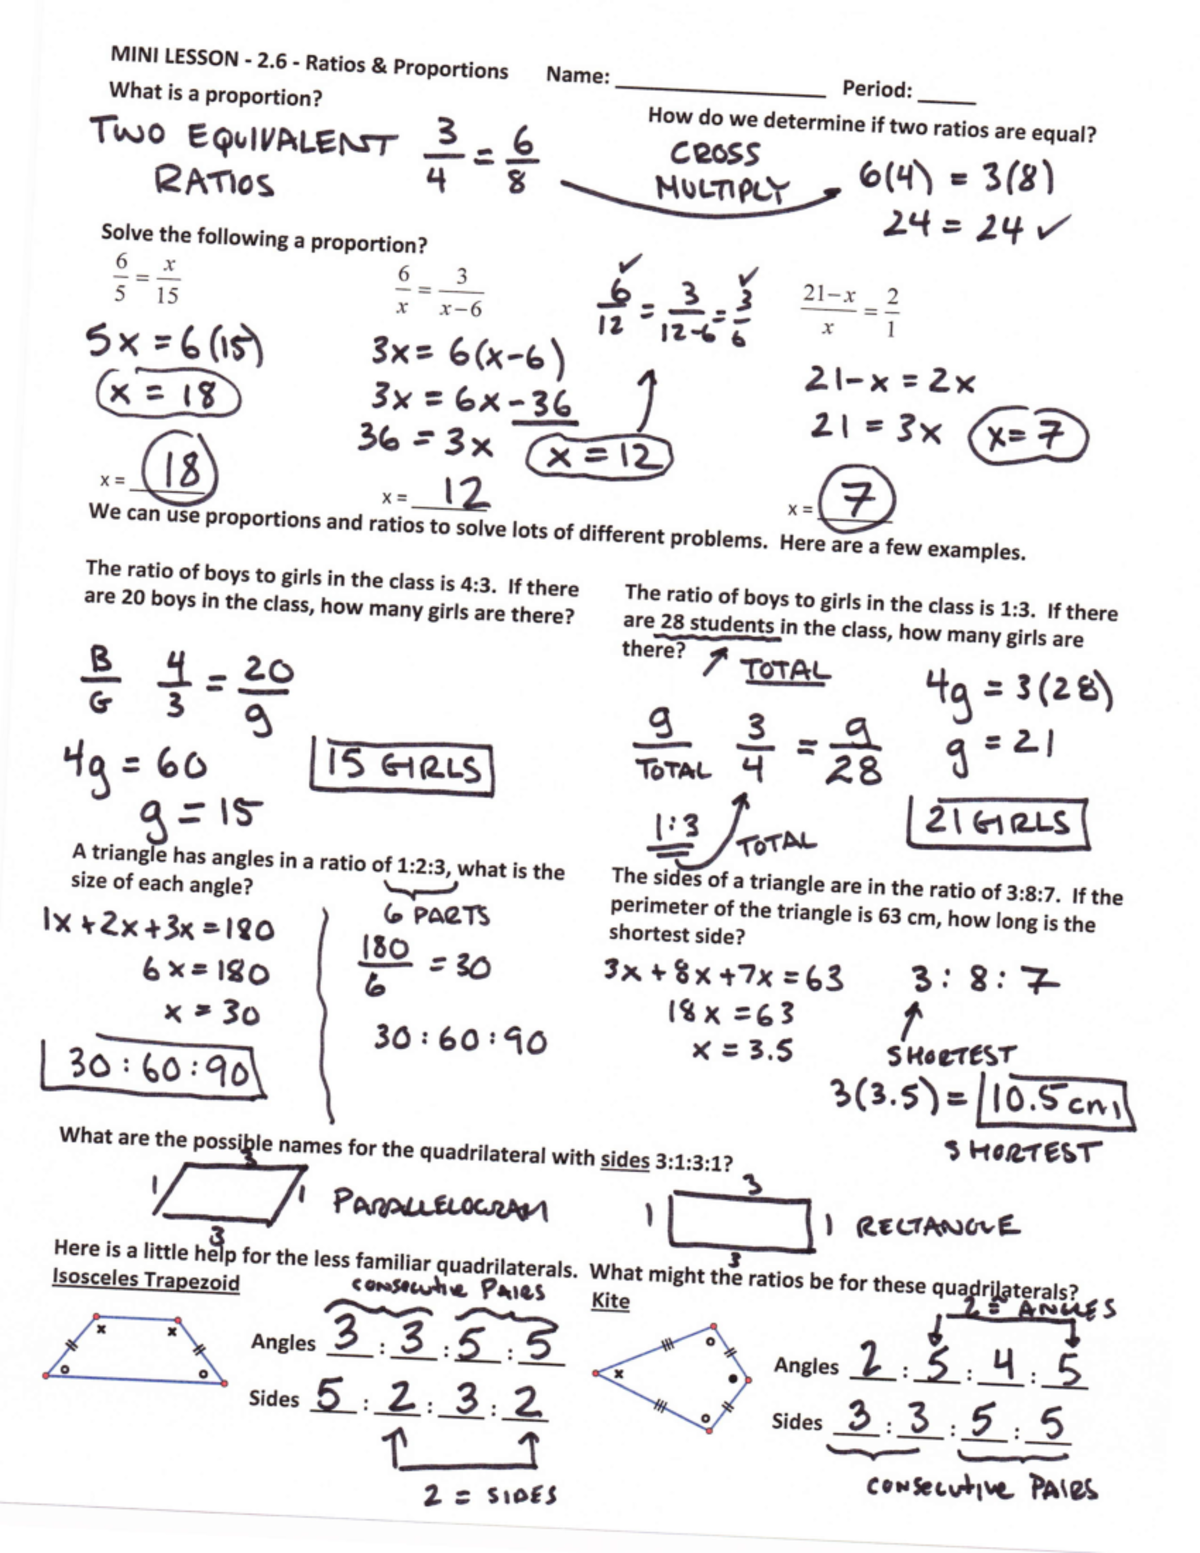 MINI LESSON - 2.6 - Ratios & Proportions Name: ____________ Period: ____
What is a proportion?
How do we determine if two ratios are equal?
TWO EQUIVALENT RATIOS
3/4 = 6/8
CROSS MULTIPLY
6(4) = 3(8)
24 = 24 ✓
Solve the following a proportion?
6/5 = x/15
5x = 6(15)
x = 18
x = 18
6/x = 3/(x-6)
3x = 6(x-6)
3x = 6x - 36
36 = 3x
x = 12
✓ ✓
6/12 = 3/(12-6) = 3/6
x = 12
(21-x)/x = 2/1
21-x = 2x
21 = 3x
x = 7
x = 7
We can use proportions and ratios to solve lots of different problems. Here are a few examples.
The ratio of boys to girls in the class is 4:3. If there
are 20 boys in the class, how many girls are there?
B/G 4/3 = 20/g
4g = 60
g = 15
15 GIRLS
The ratio of boys to girls in the class is 1:3. If there
are 28 students in the class, how many girls are
there?
TOTAL
g/TOTAL 3/4 = g/28
1:3
TOTAL
4g = 3(28)
g = 21
21 GIRLS
A triangle has angles in a ratio of 1:2:3, what is the
size of each angle?
1x + 2x + 3x = 180
6x = 180
x = 30
30 : 60 : 90
6 PARTS
180/6 = 30
30 : 60 : 90
The sides of a triangle are in the ratio of 3:8:7. If the
perimeter of the triangle is 63 cm, how long is the
shortest side?
3x + 8x + 7x = 63
18x = 63
x = 3.5
3 : 8 : 7
SHORTEST
3(3.5) = 10.5 cm
SHORTEST
What are the possible names for the quadrilateral with sides 3:1:3:1?
3
1 1 PARALLELOGRAM
3
3
1 1 RECTANGLE
3
Here is a little help for the less familiar quadrilaterals. What might the ratios be for these quadrilaterals?
Isosceles Trapezoid
CONSECUTIVE PAIRS
x x
o o
Angles 3 : 3 : 5 : 5
Sides 5 : 2 : 3 : 2
2 = SIDES
Kite
2 = ANGLES
x o o
Angles 2 : 5 : 4 : 5
Sides 3 : 3 : 5 : 5
CONSECUTIVE PAIRS